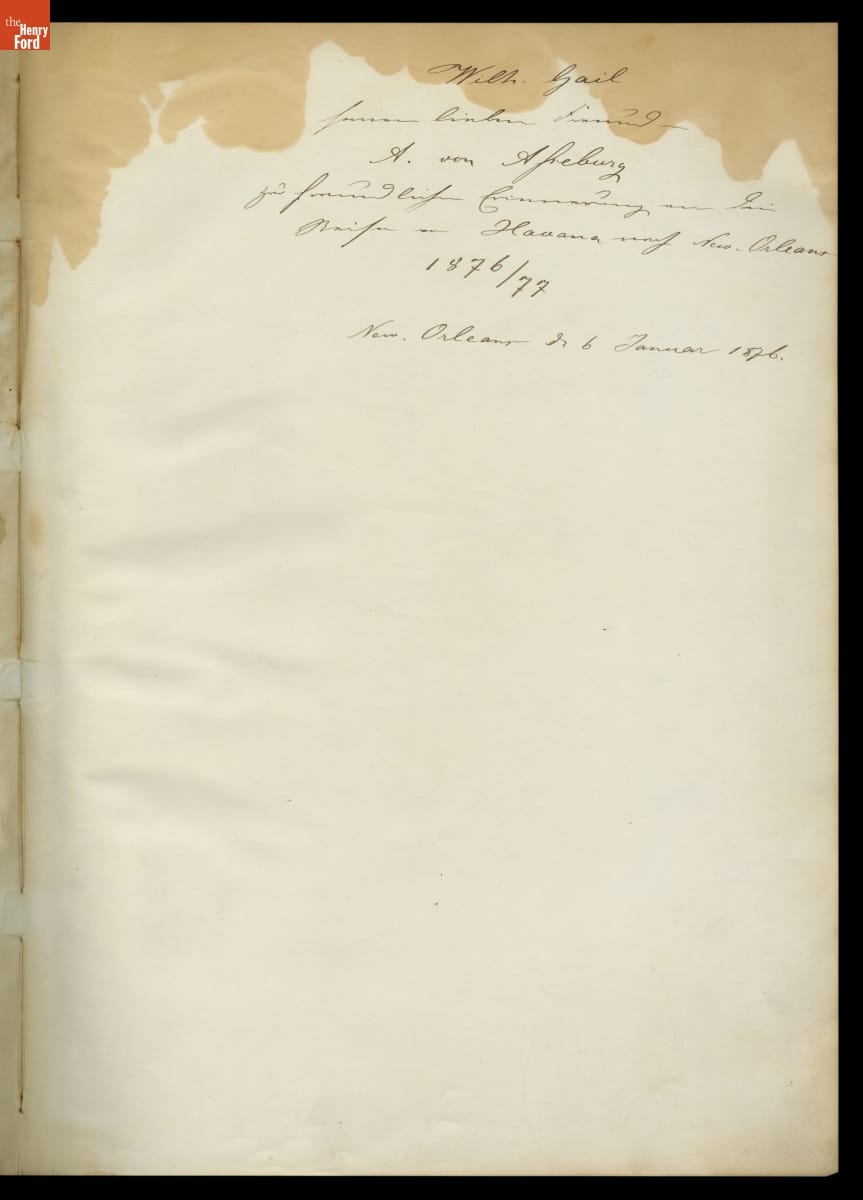 the
Henry
Ford
Wilh. Gail
seinem lieben Freund
A. von Asseburg
zu freundlicher Erinnerung an die
Reise v Havana nach New-Orleans
1876/77
New-Orleans d 6 Januar 1876.